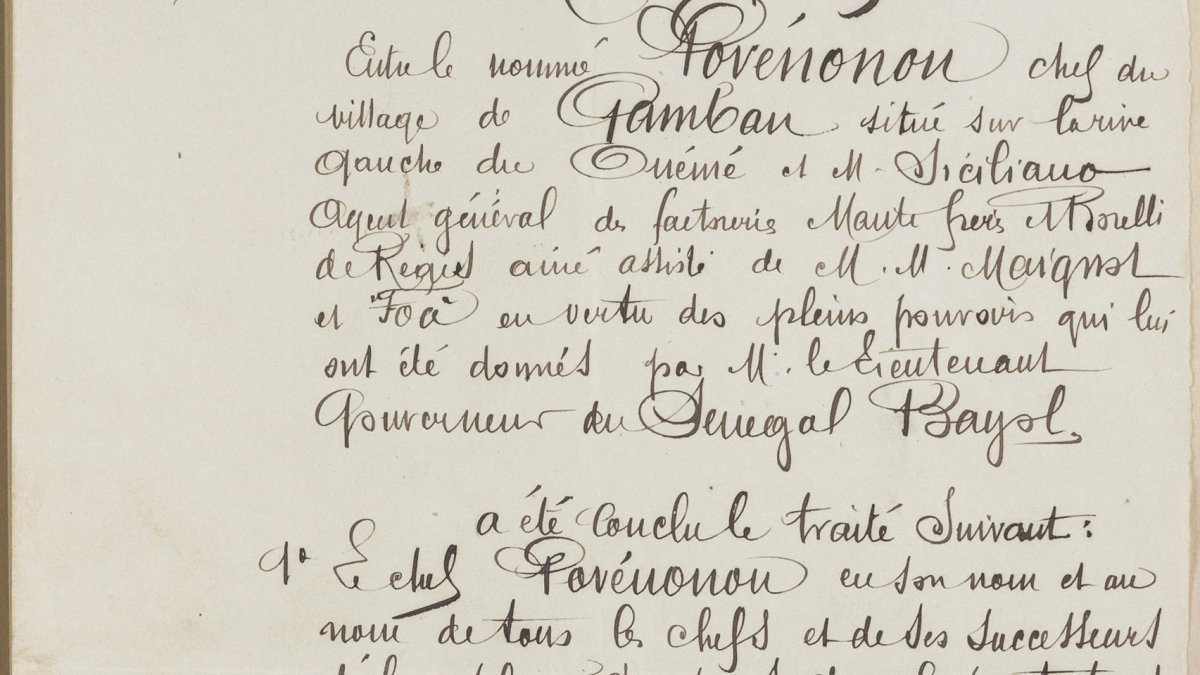 Entre le nommé Povénonou chef du
village de Gamban situé sur la rive
gauche du Ouémé et M. Siciliano
Agent général des factoreries Mante frères & Borelli
de Régis ainé assisté de M. M. Maignot
et Foà en vertu des pleins pouvoirs qui lui
ont été donnés par M. le Lieutenant
Gouverneur du Sénégal Bayol.
a été conclu le traité suivant :
1° Le chef Povénonou en son nom et au
nom de tous les chefs et de ses successeurs